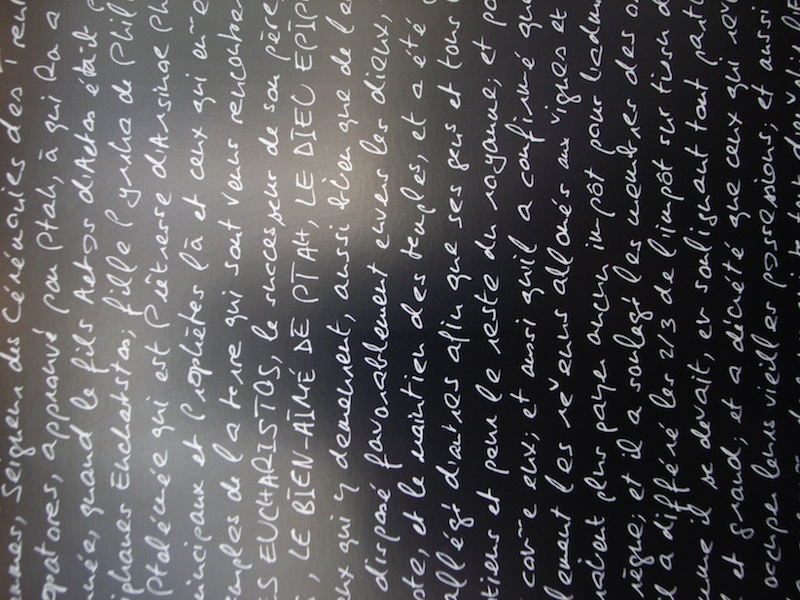 Seigneur des Cérémonies des Tren
opatores, approuvé par Ptah, à qui Ra a
née, quand le fils Aetos d'Aetos était p
iphanes Eucharistos, fille Pyrrha de Phili
Ptolémée qui est Prêtresse d'Arsinoe Ph
incipaux et Prophètes là et ceux qui entre
emples de la terre qui sont venus rencontrer
S EUCHARISTOS, le successeur de son père
, LE BIEN-AIMÉ DE PTAH, LE DIEU EPIP
eux qui y demeurent, aussi bien que de l'e
disposé favorablement envers les dieux,
pte, et le maintien des temples, et a été g
allégé d'autres afin que ses gens et tous
tiens et pour le reste du royaume; et po
comme eux; et aussi qu'il a confirmé que
lement les revenus alloués aux vignes et
vaient plus payer aucun impôt pour l'admi
règne; et il a soulagé les membres des o
l a différé les 2/3 de l'impôt sur tissu d
mme il se devait, en soulignant tout parti
l et grand; et a décrété que ceux qui rev
occuper leurs vieilles possessions; et aussi